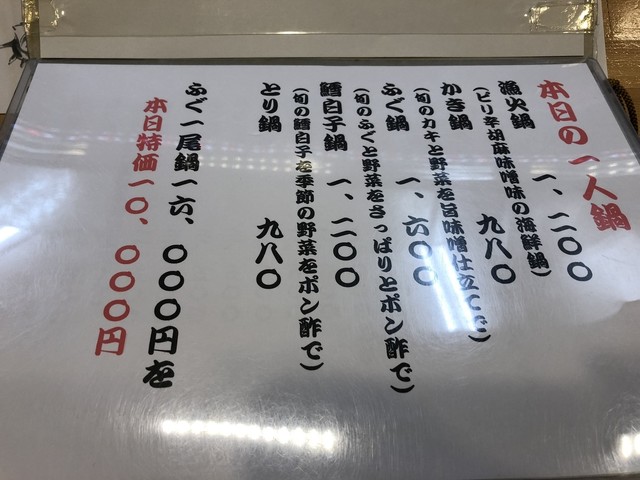 本日の一人鍋
漁火鍋 一、二〇〇
(ピリ辛胡麻味噌味の海鮮鍋)
かき鍋 九八〇
(旬のカキと野菜を旨味噌仕立てで)
ふぐ鍋 一、六〇〇
(旬のふぐと野菜をさっぱりとポン酢で)
鱈白子鍋 一、二〇〇
(旬の鱈白子を季節の野菜をポン酢で)
とり鍋 九八〇
ふぐ一尾鍋一六、〇〇〇円を
本日特価一〇、〇〇〇円